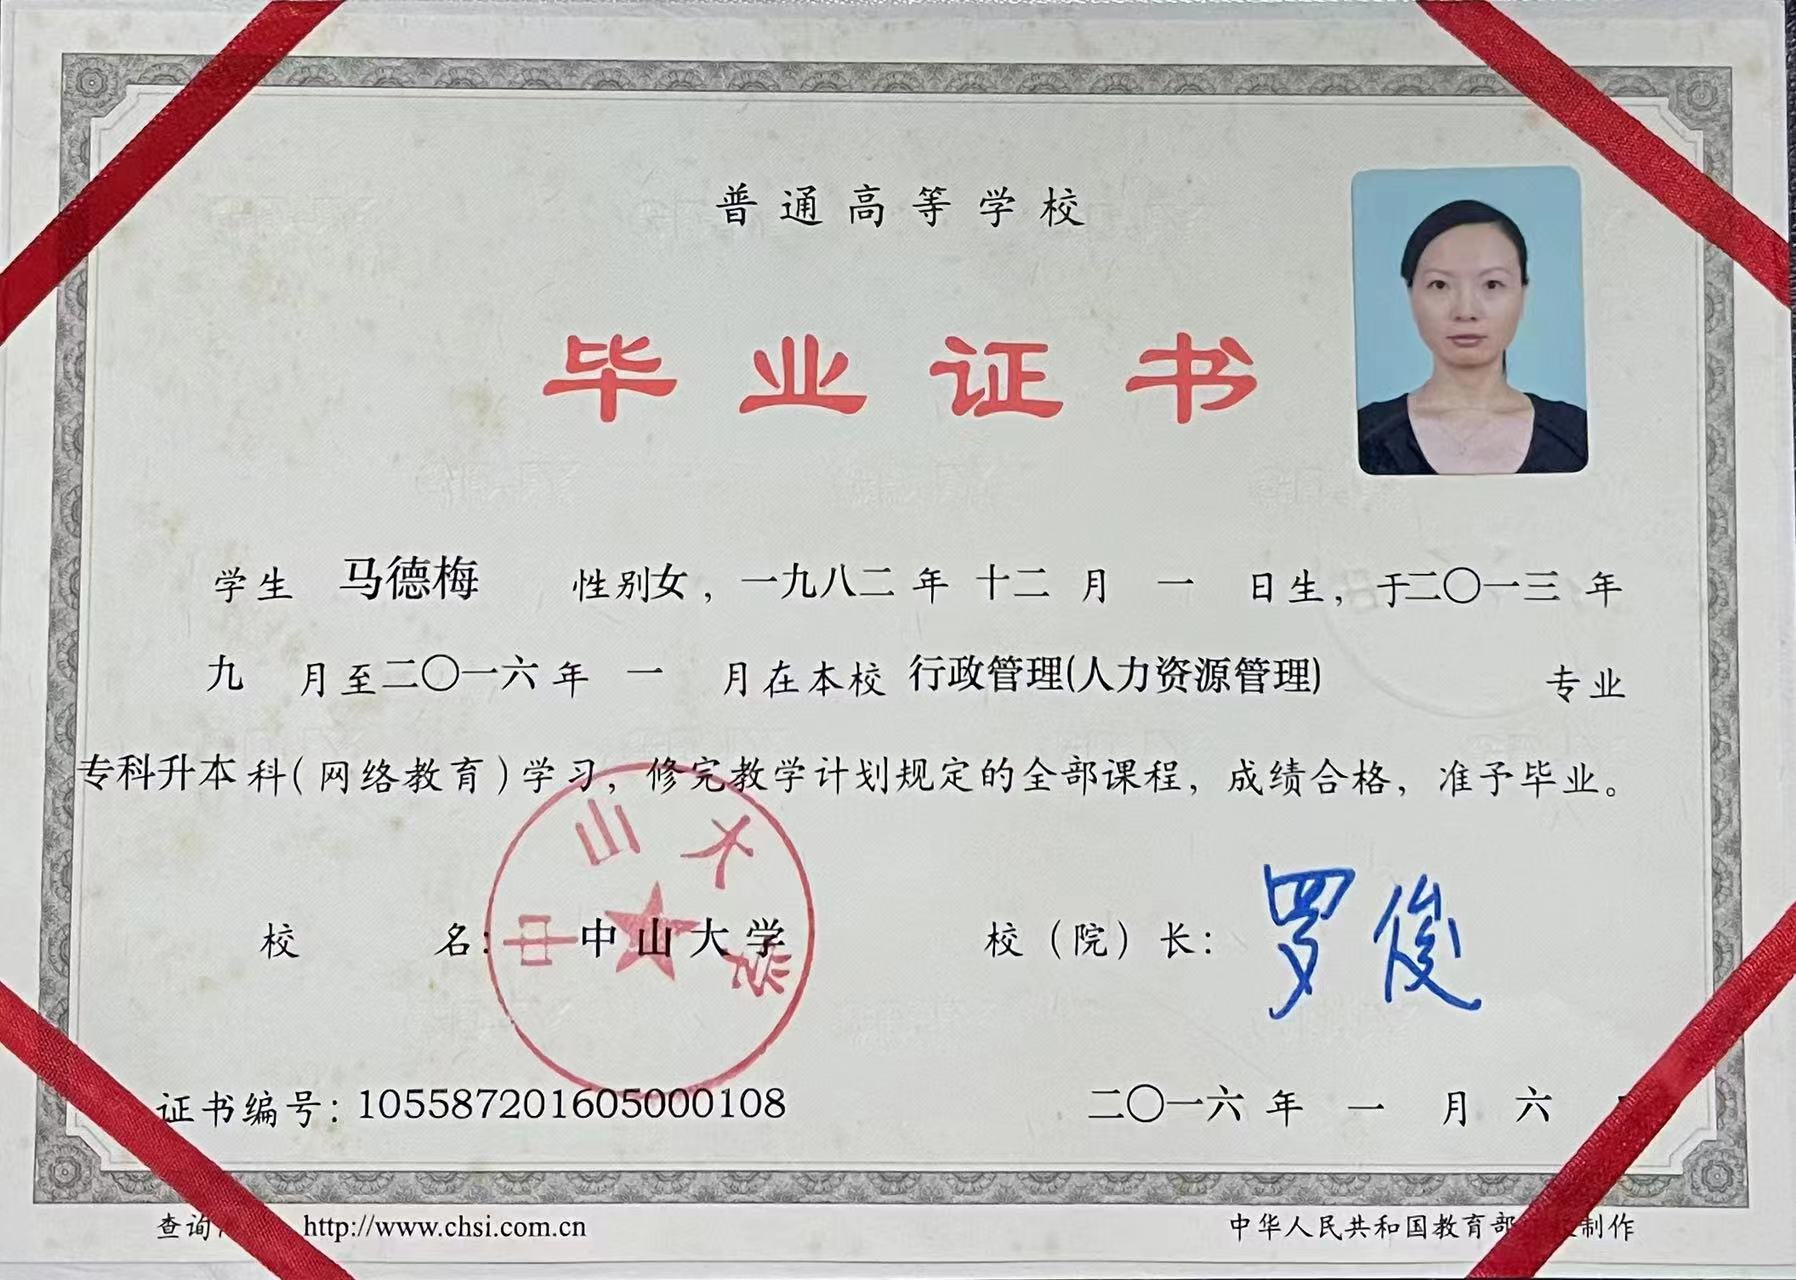 普通高等学校
毕业证书
学生 马德梅 性别女，一九八二年十二月一日生，于二〇一三年
九月至二〇一六年一月在本校 行政管理(人力资源管理) 专业
专科升本科（网络教育）学习，修完教学计划规定的全部课程，成绩合格，准予毕业。
中山大学
校名：中山大学 校（院）长：罗俊
证书编号：105587201605000108 二〇一六年一月六
查询 http://www.chsi.com.cn 中华人民共和国教育部 制作